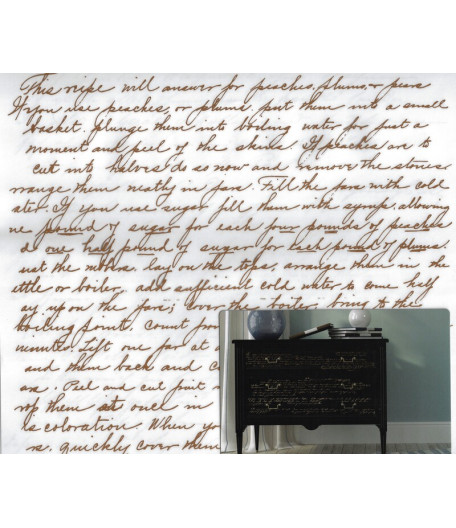 This recipe will answer for peaches, plums, or pears
If you use peaches, or plums, put them into a small
basket, plunge them into boiling water for just a
moment and peel of the skins. If peaches are to
cut into halves do so now and remove the stones
rrange them neatly in jars. Fill the jars with cold
ater. If you use sugar fill them with syrup, allowing
ne pound of sugar for each four pounds of peaches
d one half pound of sugar for each pound of plums.
ust the rubbers, lay on the tops, arrange them in the
ettle or boiler, add sufficient cold water to come half
ay up on the jars; cover the boiler, bring to the
boiling point, count fro
minutes. Lift one jar at
and them back and c
ars. Peel and cut
rop them at once in
is coloration. When yo
rs, quickly cover them